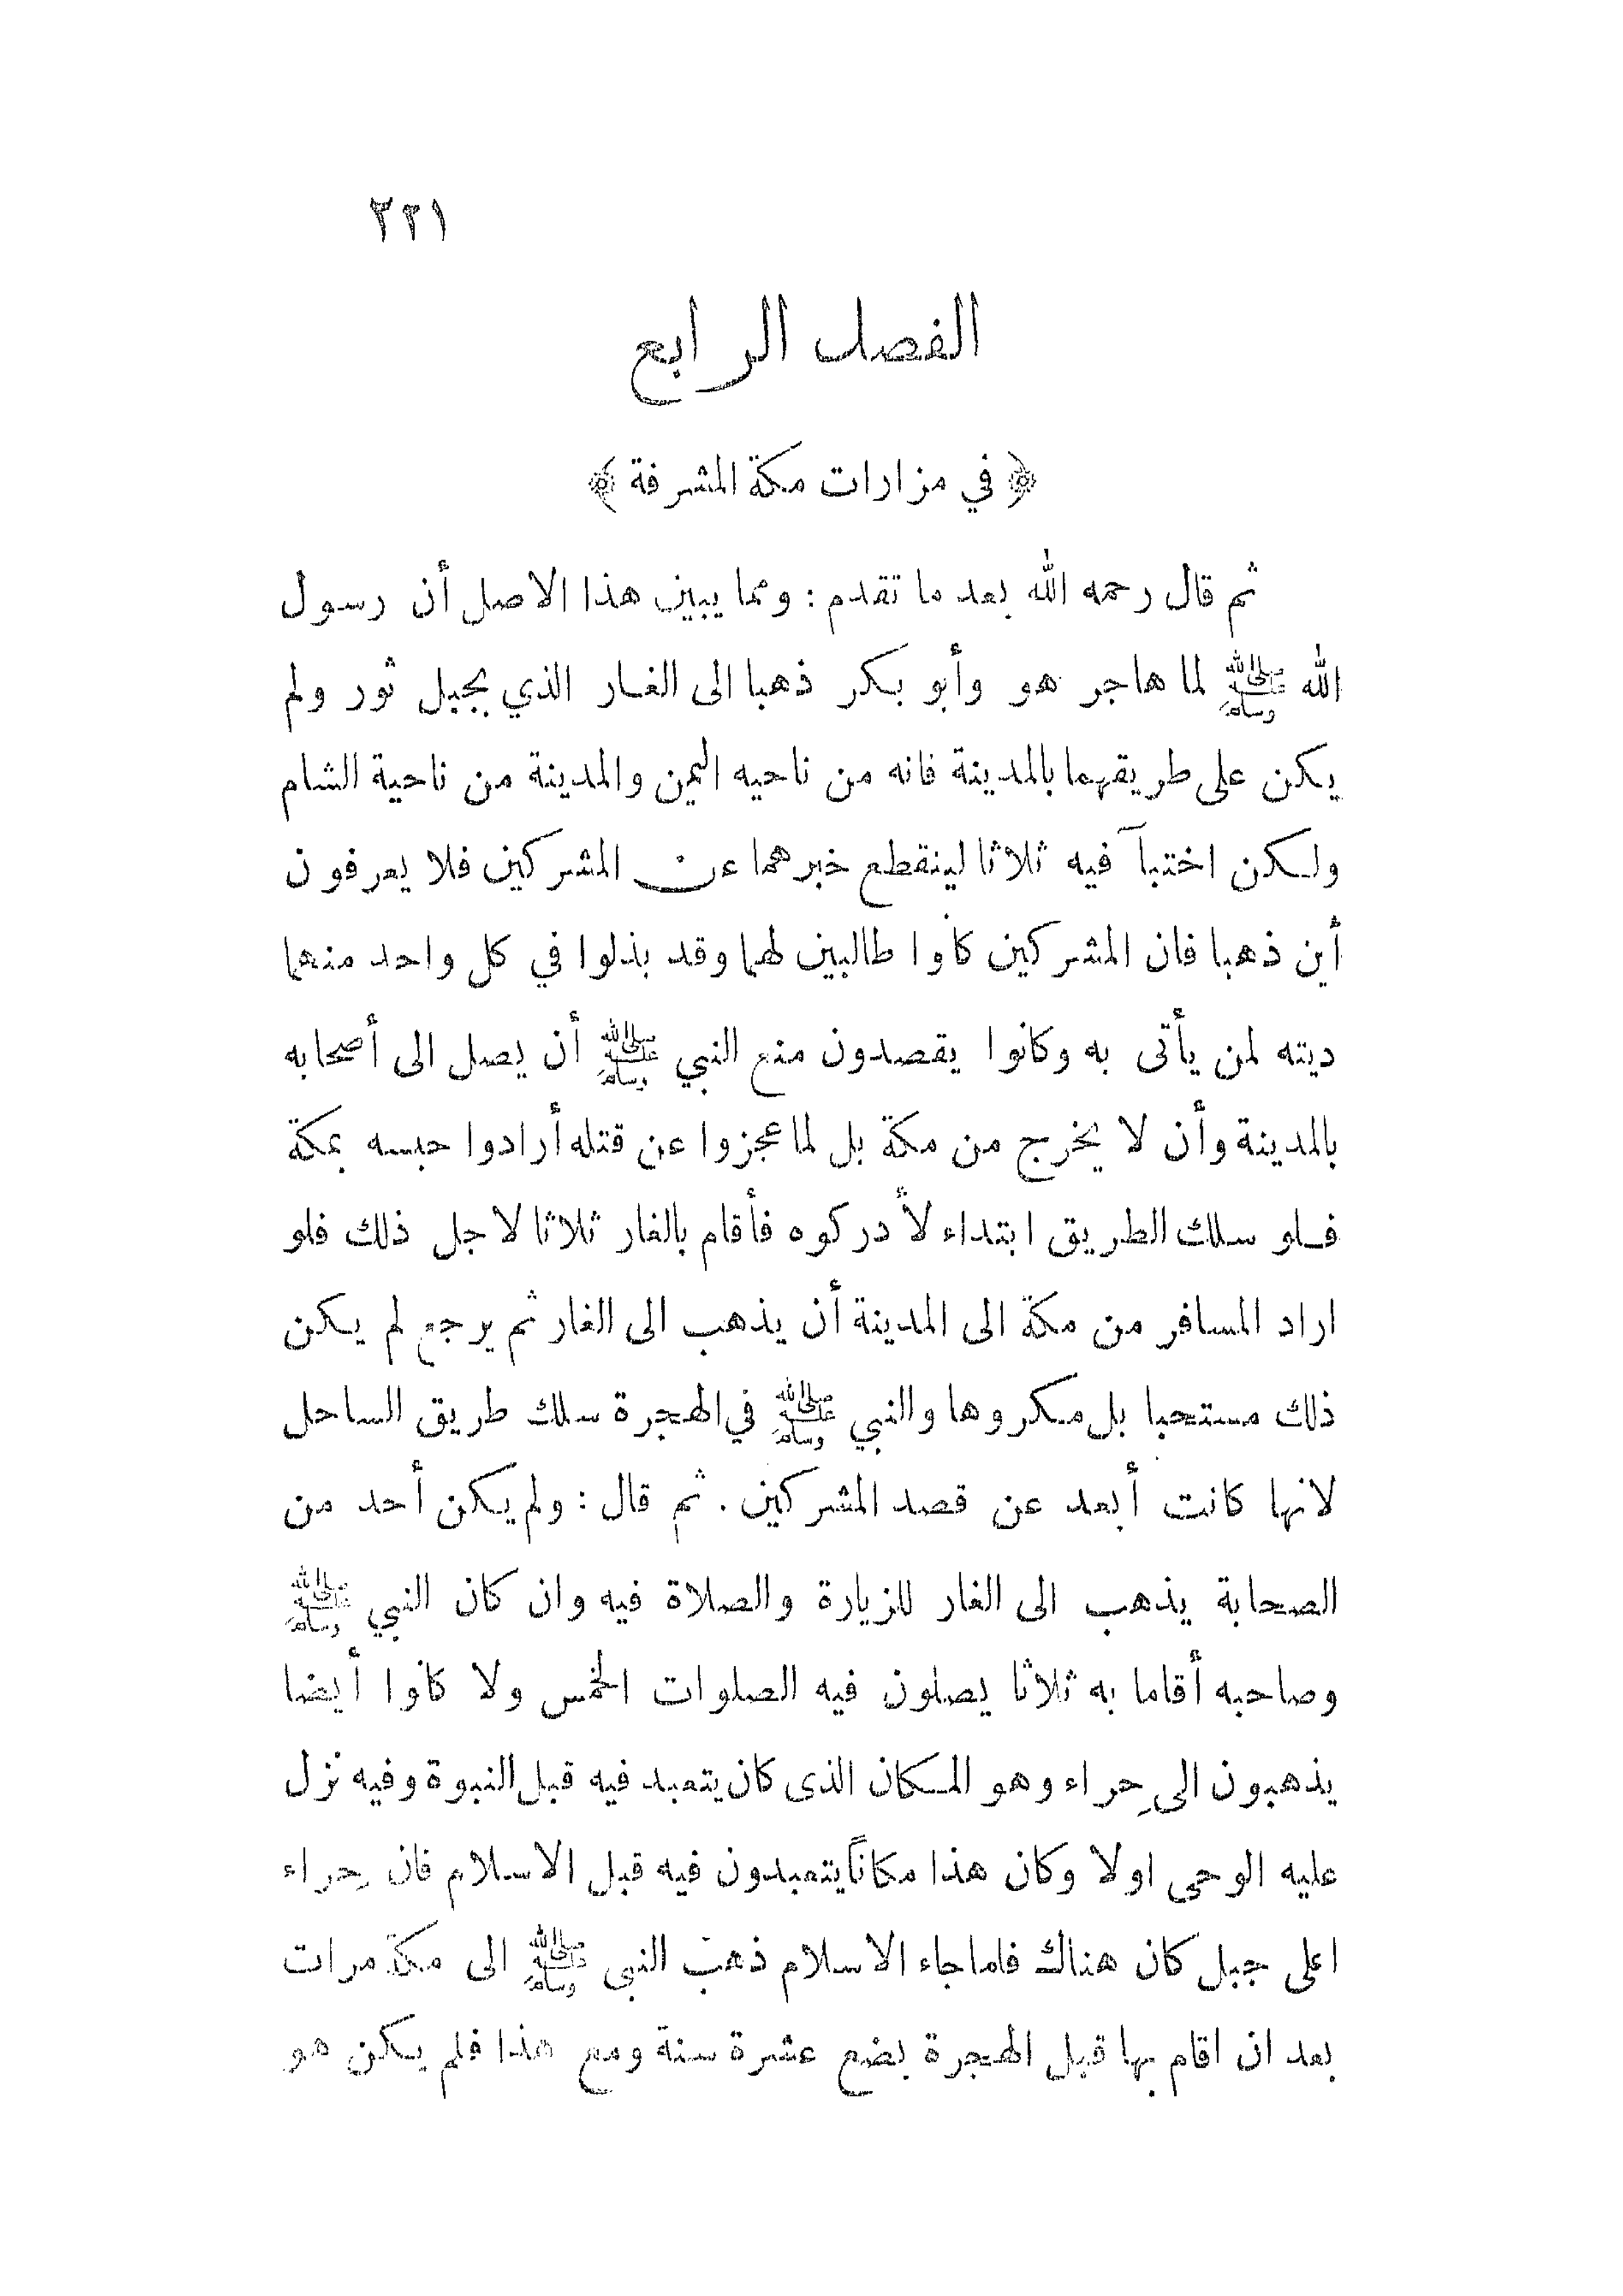 ٣٢١
الفصل الرابع
﴿ في مزارات مكة المشرفة ﴾
ثم قال رحمه الله بعد ما تقدم : ومما يبين هذا الاصل أن رسول
الله ﷺ لما هاجر هو وأبو بكر ذهبا الى الغار الذي بجبل ثور ولم
يكن على طريقهما بالمدينة فانه من ناحيه اليمن والمدينة من ناحية الشام
ولكن اختبآ فيه ثلاثا لينقطع خبرهما عن المشركين فلا يعرفون
أين ذهبا فان المشركين كانوا طالبين لهما وقد بذلوا في كل واحد منهما
ديته لمن يأتى به وكانوا يقصدون منع النبي ﷺ أن يصل الى أصحابه
بالمدينة وأن لا يخرج من مكة بل لما عجزوا عن قتله أرادوا حبسه بمكة
فلو سلك الطريق ابتداء لأدركوه فأقام بالغار ثلاثا لاجل ذلك فلو
اراد المسافر من مكة الى المدينة أن يذهب الى الغار ثم يرجع لم يكن
ذلك مستحبا بل مكروها والنبي ﷺ في الهجرة سلك طريق الساحل
لانها كانت أبعد عن قصد المشركين . ثم قال : ولم يكن أحد من
الصحابة يذهب الى الغار للزيارة والصلاة فيه وان كان النبي ﷺ
وصاحبه أقاما به ثلاثا يصلون فيه الصلوات الخمس ولا كانوا أيضا
يذهبون الى حِراء وهو المكان الذى كان يتعبد فيه قبل النبوة وفيه نزل
عليه الوحى اولا وكان هذا مكاناً يتعبدون فيه قبل الاسلام فان حِراء
اعلى جبل كان هناك فلما جاء الاسلام ذهب النبى ﷺ الى مكة مرات
بعد ان اقام بها قبل الهجرة بضع عشرة سنة ومع هذا فلم يكن هو